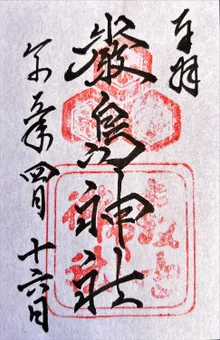 奉拝
嚴島神社
令和五年四月十六日